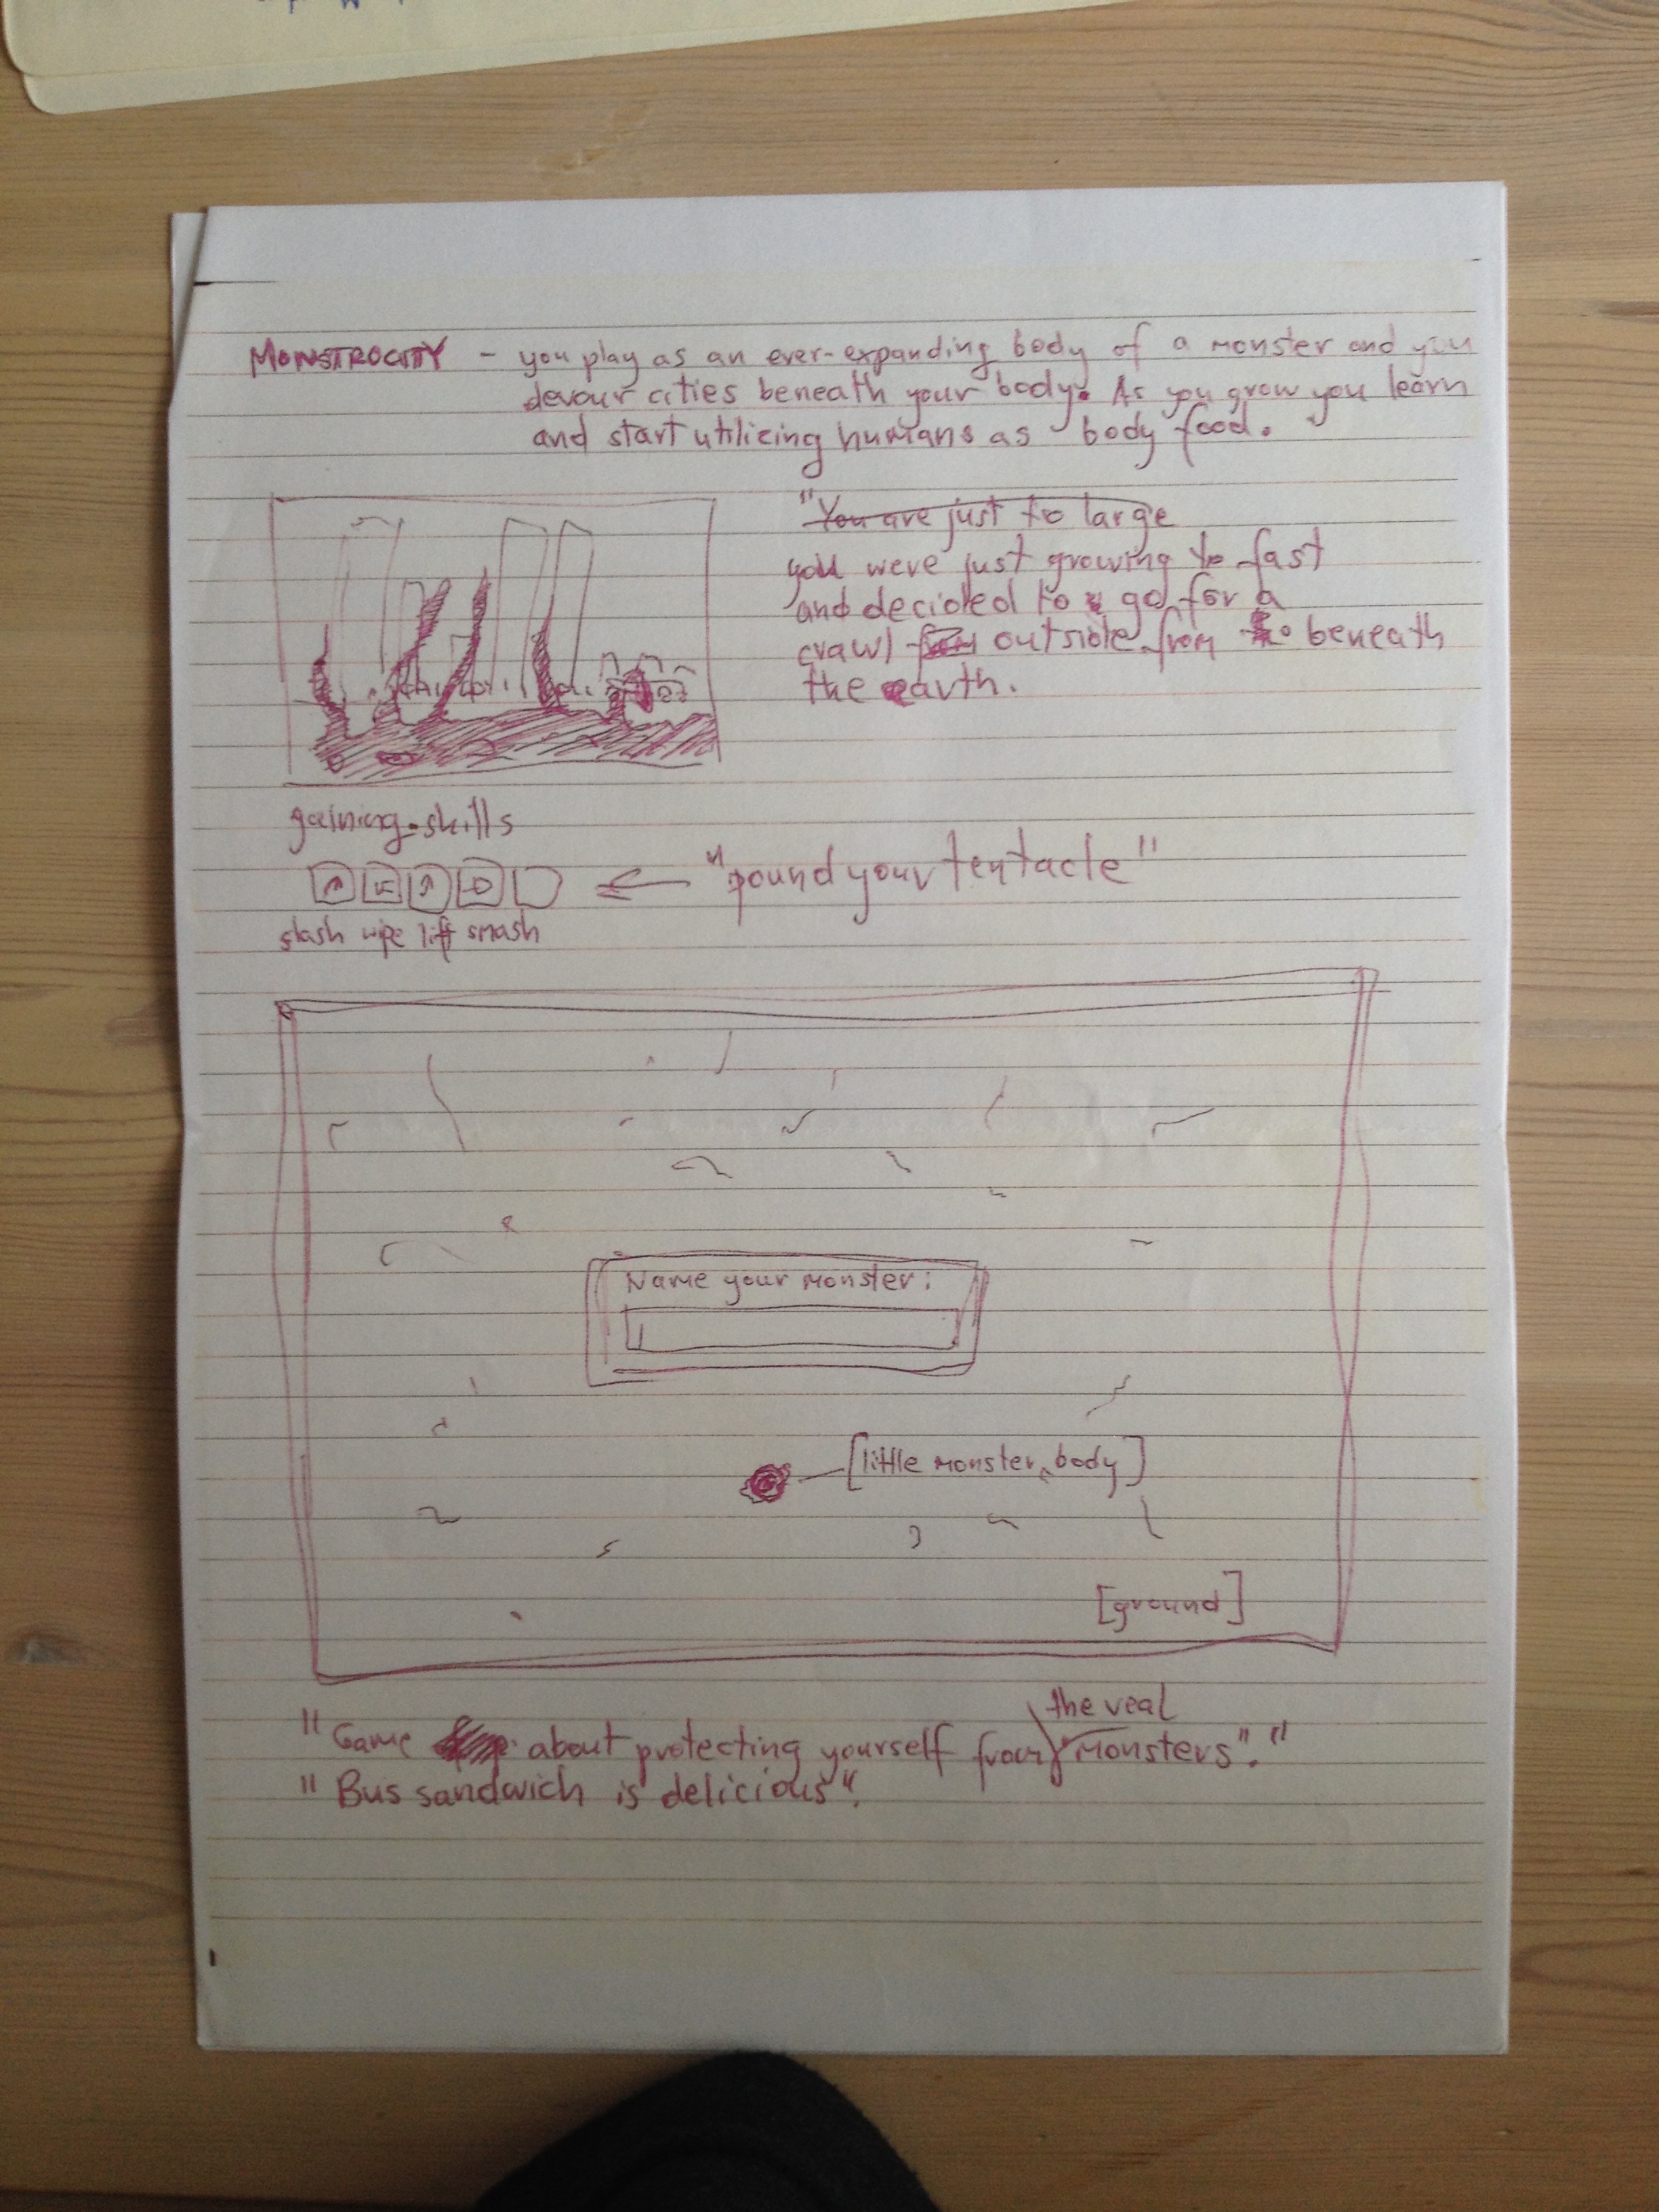 MONSTROCITY - you play as an ever-expanding body of a monster and you
devour cities beneath your body. As you grow you learn
and start utilizing humans as body food.
"You are just to large
you were just growing to fast
and decided to go for a
crawl outside from beneath
the earth.
gaining skills
"pound your tentacle"
slash wipe lift smash
Name your monster:
[little monster body]
[ground]
the real
"Game about protecting yourself from monsters"."
"Bus sandwich is delicious".